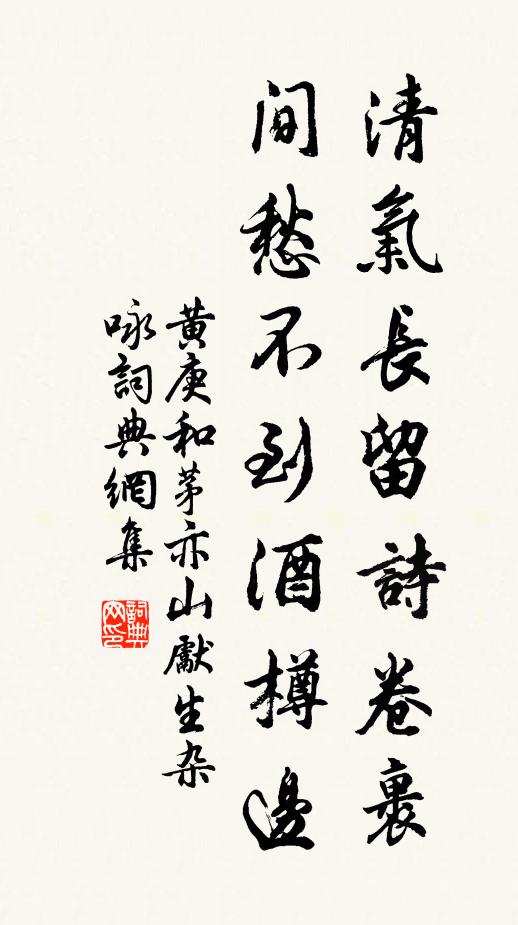 清氣長留詩卷裏
間愁不到酒樽邊
黃庚和茅亦山獻生杂
咏詞典網集
詞典
网印